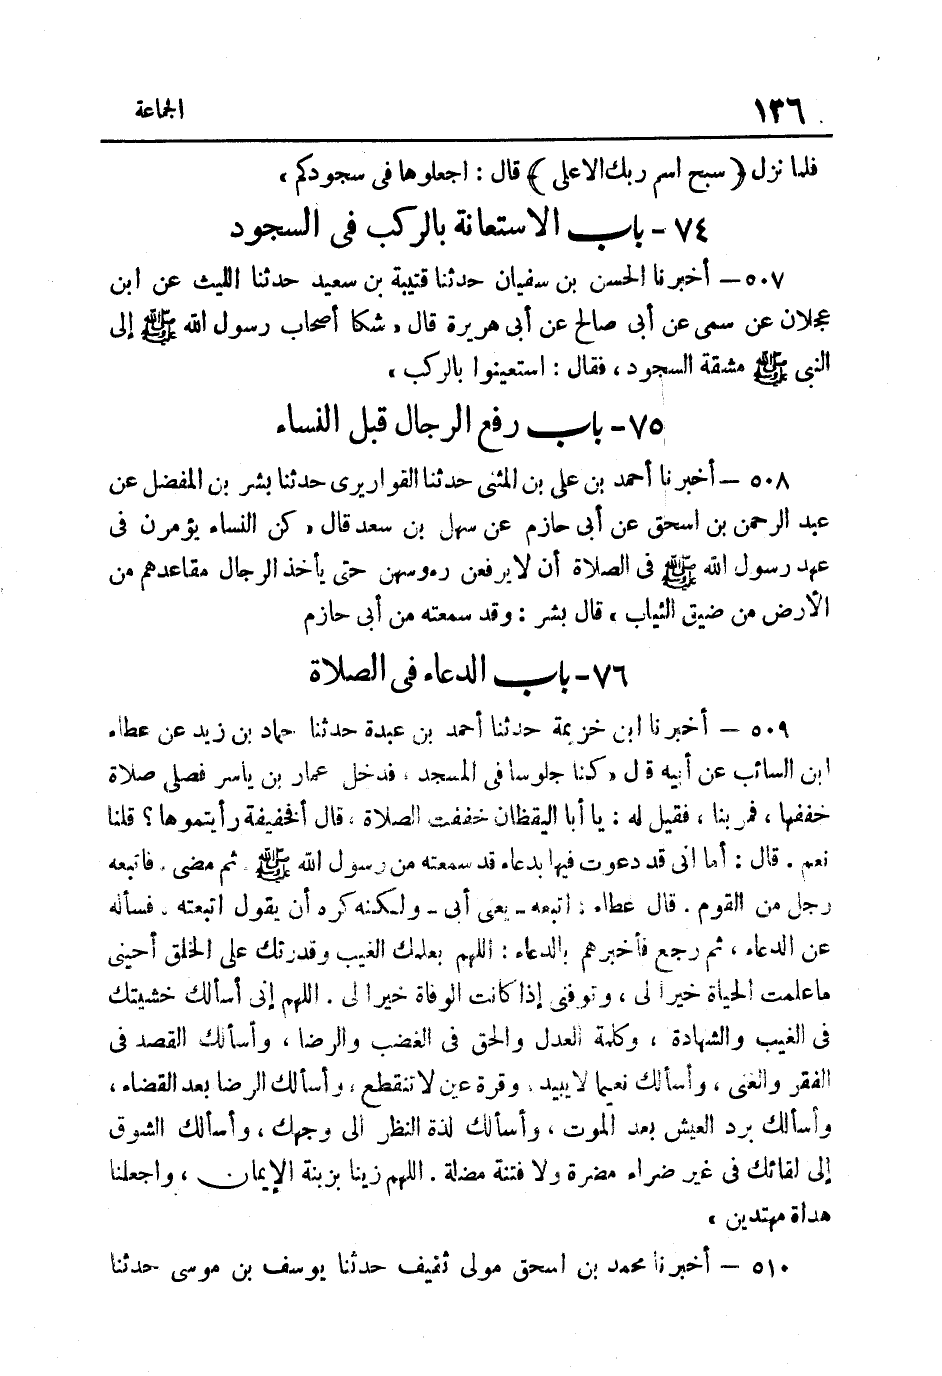 ١٣٦ الجماعة
فلما نزل ﴿ سبح اسم ربك الاعلى ﴾ قال : اجعلوها فى سجودكم »
٧٤ - باب الاستعانة بالركب فى السجود
٥٠٧ - أخبرنا الحسن بن سفيان حدثنا قتيبة بن سعيد حدثنا الليث عن ابن
عجلان عن سمى عن أبى صالح عن أبى هريرة قال « شكا أصحاب رسول الله ﷺ إلى
النبى ﷺ مشقة السجود ، فقال : استعينوا بالركب »
٧٥ - باب رفع الرجال قبل النساء
٥٠٨ - أخبرنا أحمد بن على بن المثنى حدثنا القواريرى حدثنا بشر بن المفضل عن
عبد الرحمن بن اسحق عن أبى حازم عن سهل بن سعد قال « كن النساء يؤمرن فى
عهد رسول الله ﷺ فى الصلاة أن لا يرفعن رءوسهن حتى يأخذ الرجال مقاعدهم من
الأرض من ضيق الثياب » قال بشر : وقد سمعته من أبى حازم
٧٦ - باب الدعاء فى الصلاة
٥٠٩ - أخبرنا ابن خزيمة حدثنا أحمد بن عبدة حدثنا حماد بن زيد عن عطاء
ابن السائب عن أبيه قال « كنا جلوسا فى المسجد ، فدخل عمار بن ياسر فصلى صلاة
خففها ، فمر بنا ، فقيل له : يا أبا اليقظان خففت الصلاة ، قال أفخفيفة رأيتموها ؟ قلنا
نعم . قال : أما انى قد دعوت فيها بدعاء قد سمعته من رسول الله ﷺ . ثم مضى . فاتبعه
رجل من القوم . قال عطاء : اتبعه - يعنى أبى - ولكنه كره أن يقول اتبعته . فسأله
عن الدعاء ، ثم رجع فأخبرهم بالدعاء : اللهم بعلمك الغيب وقدرتك على الخلق أحينى
ما علمت الحياة خيرا لى ، وتوفنى إذا كانت الوفاة خيرا لى . اللهم إنى أسألك خشيتك
فى الغيب والشهادة ، وكلمة العدل والحق فى الغضب والرضا ، وأسألك القصد فى
الفقر والغنى ، وأسألك نعيما لا يبيد ، وقرة عين لا تنقطع ، وأسألك الرضا بعد القضاء ،
وأسألك برد العيش بعد الموت ، وأسألك لذة النظر الى وجهك ، وأسألك الشوق
إلى لقائك فى غير ضراء مضرة ولا فتنة مضلة . اللهم زينا بزينة الإيمان ، واجعلنا
هداة مهتدين »
٥١٠ - أخبرنا محمد بن اسحق مولى ثقيف حدثنا يوسف بن موسى حدثنا